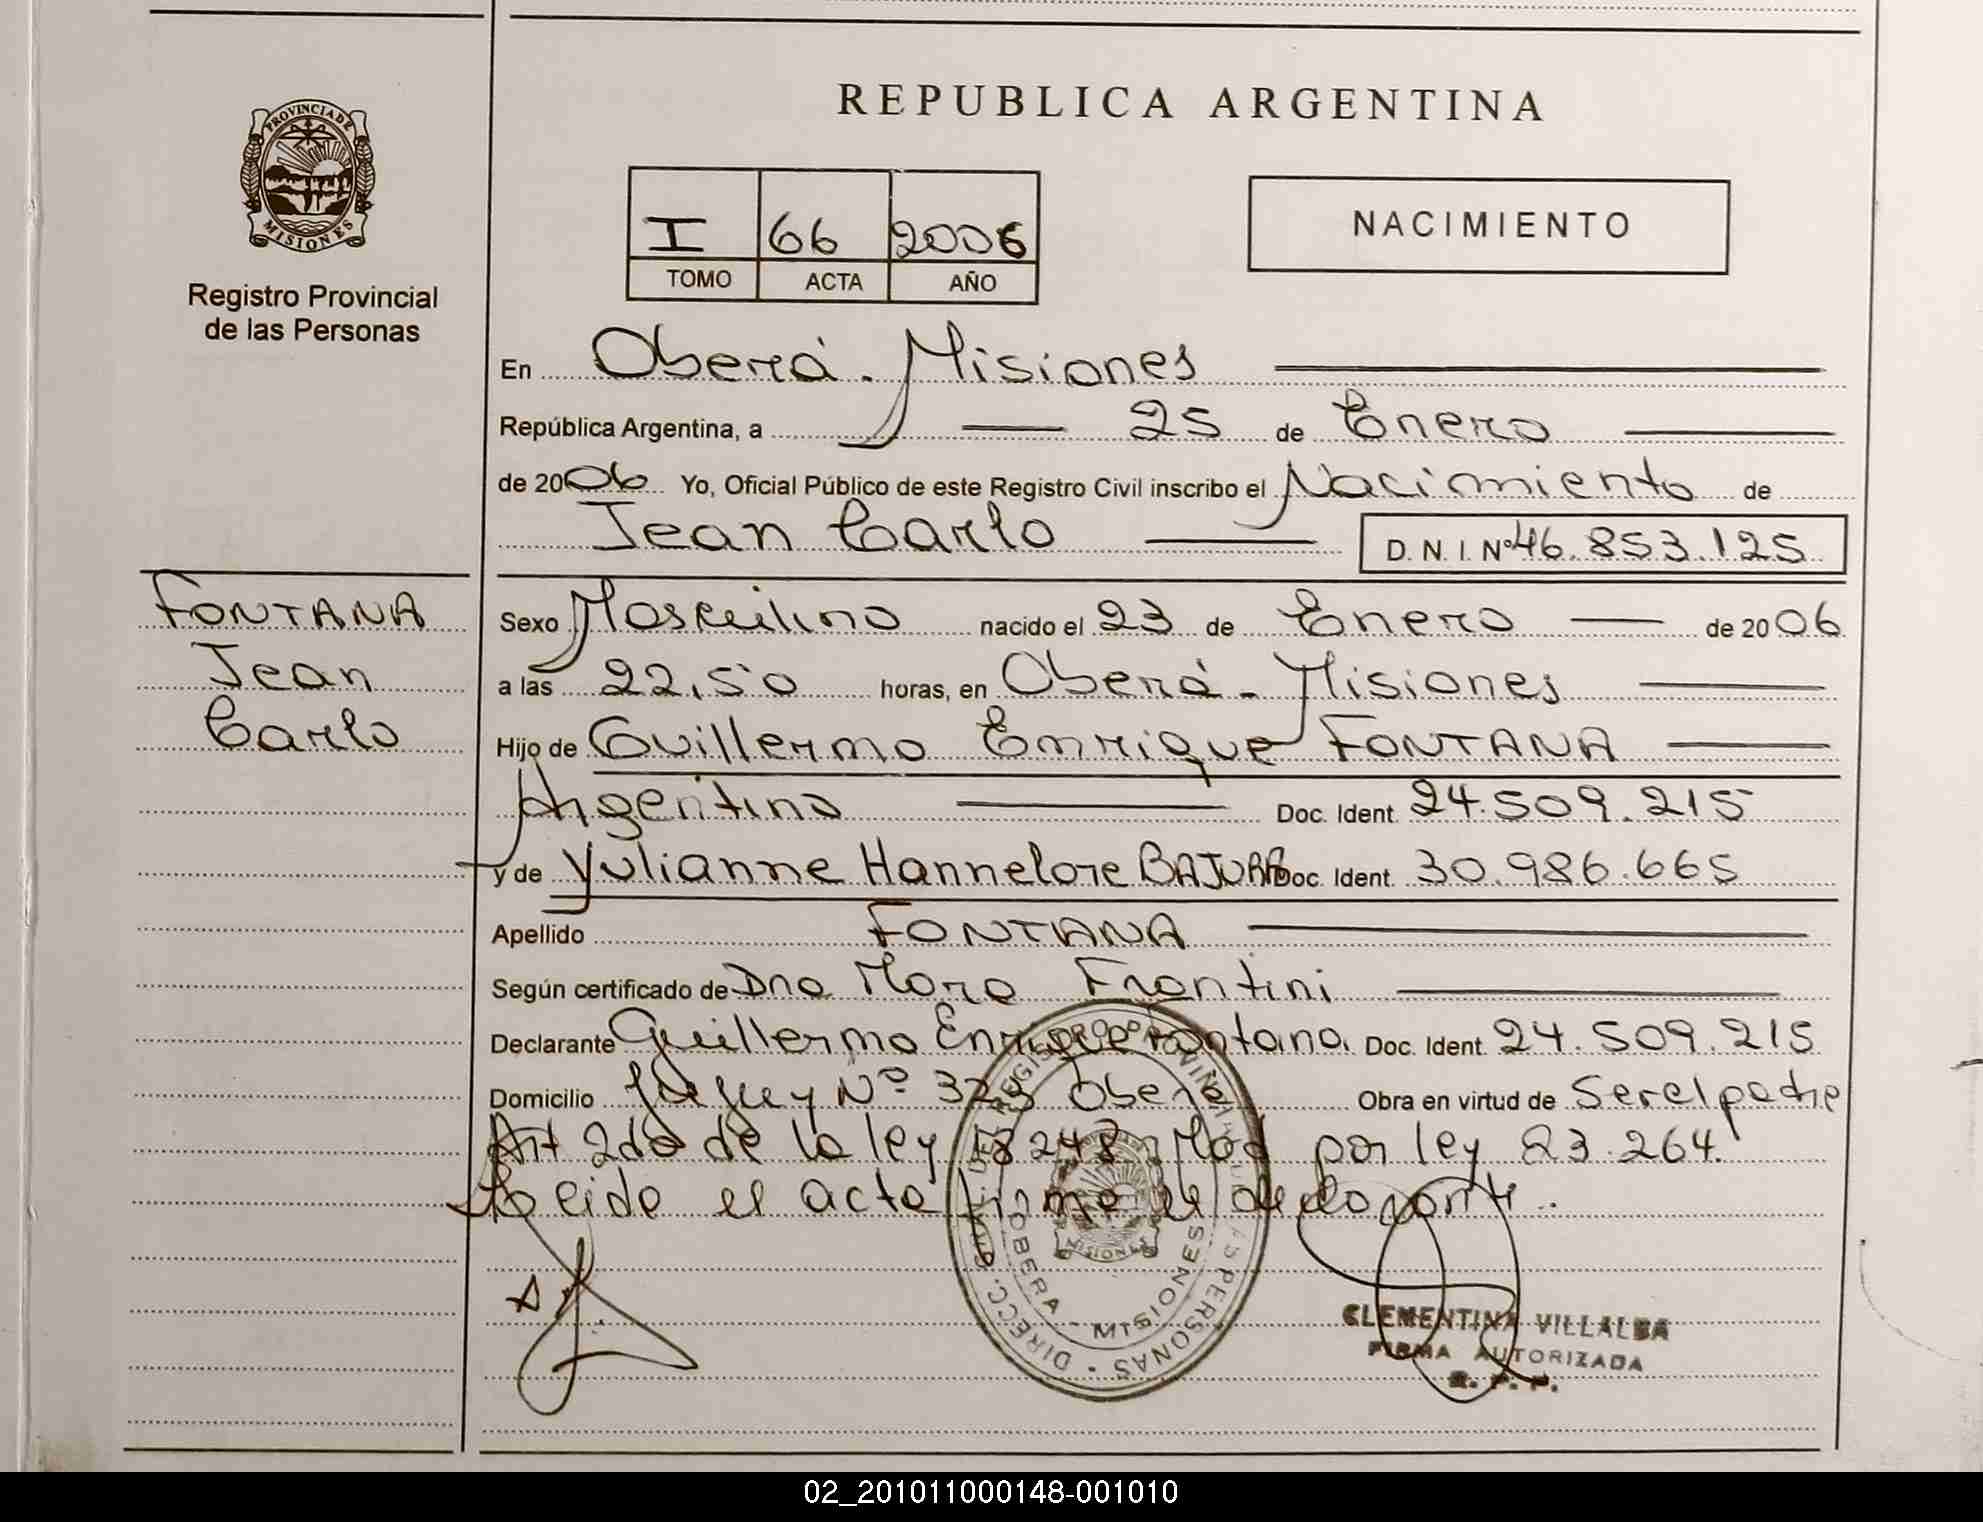 PROVINCIA DE
MISIONES
Registro Provincial
de las Personas
REPUBLICA ARGENTINA
I 66 2006
TOMO ACTA AÑO
NACIMIENTO
En Oberá - Misiones
República Argentina, a 25 de Enero
de 2006 Yo, Oficial Público de este Registro Civil inscribo el Nacimiento de
Jean Carlo D. N. I. Nº 46.853.125
FONTANA
Jean
Carlo
Sexo Masculino nacido el 23 de Enero de 2006
a las 22,50 horas, en Oberá - Misiones
Hijo de Guillermo Enrique FONTANA
Argentino Doc. Ident. 24.509.215
y de Yulianne Hannelore Doc. Ident. 30.986.665
Apellido FONTANA
Según certificado de Dra Mara Frontini
Declarante Guillermo Enrique Fontana. Doc. Ident. 24.509.215
Domicilio Nº 323 Oberá Obra en virtud de Ser el padre
Art 2do de la ley 18248 Mod por ley 23.264.
Leida el acta firma el declarante.
DIRECC. GRAL. DEL REGISTRO PROVINCIAL DE LAS PERSONAS
OBERA - MISIONES
MISIONES
CLEMENTINA VILLALBA
FIRMA AUTORIZADA
R. P. P.
02_201011000148-001010